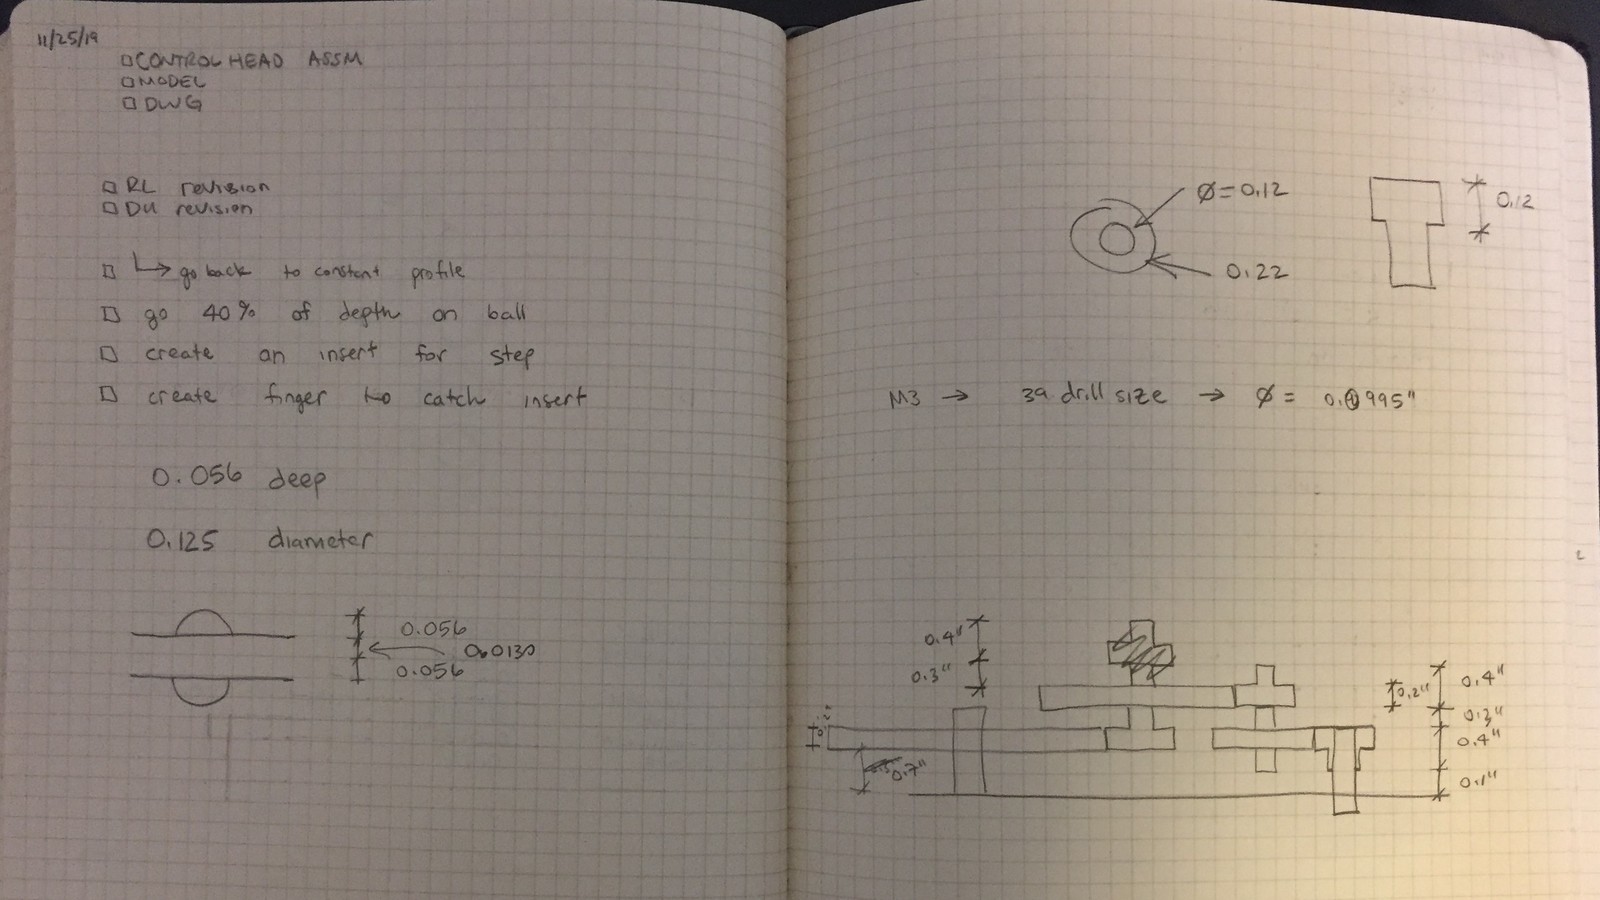 11/25/19
CONTROL HEAD ASSM
MODEL
DWG
RL revision
DU revision
go back to constant profile
go 40% of depth on ball
create an insert for step
create finger to catch insert
0.056 deep
0.125 diameter
0.056
0.0130
0.056
Ø=0.12
0.22
0.12
M3 → 39 drill size → Ø = 0.0995"
0.4"
0.3"
0.7"
0.2"
0.4"
0.3"
0.4"
0.1"